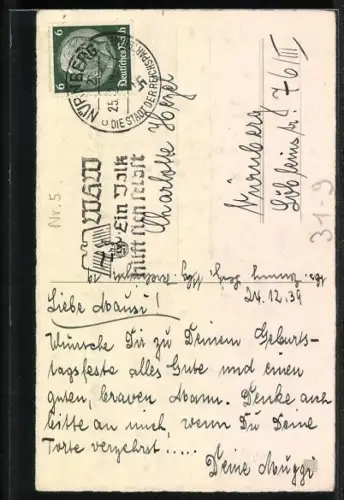 6
6
Deutsches Reich
NÜRNBERG
25.
c
DIE STADT DER REICHSPAR
WHW
Ein Volk
hilft sich selbst
Nr. 5
Charlotte
Nürnberg
76/III
31-9
24.12.39
Liebe Mausi!
Wünsche Dir zu Deinem Geburts-
tagsfeste alles Gute und einen
guten, braven Mann. Denke auch
bitte an mich, wenn Du Deine
Torte verzehrst.....
Deine Muggi